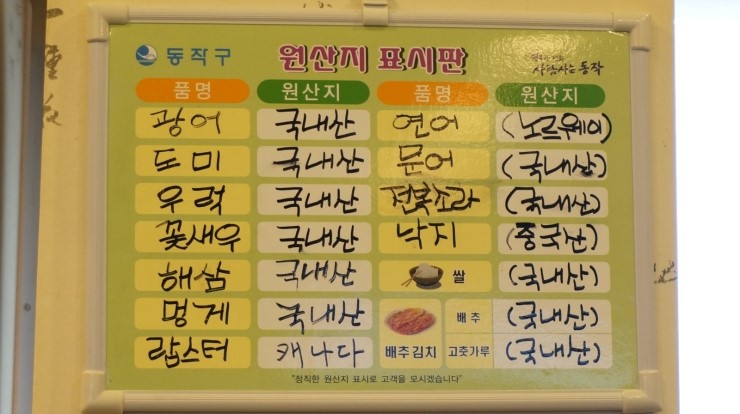 동작구 원산지 표시판 사람사는 동작
품명 원산지 품명 원산지
광어 국내산 연어 (노르웨이)
도미 국내산 문어 (국내산)
우럭 국내산 전복소라 (국내산)
꽃새우 국내산 낙지 (중국산)
해삼 국내산 쌀 (국내산)
멍게 국내산 배추 (국내산)
랍스터 캐나다 배추김치 고춧가루 (국내산)
"정직한 원산지 표시로 고객을 모시겠습니다"